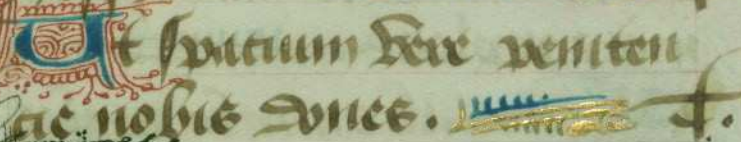 Ut spatium vere peniten
cie nobis dones. T.